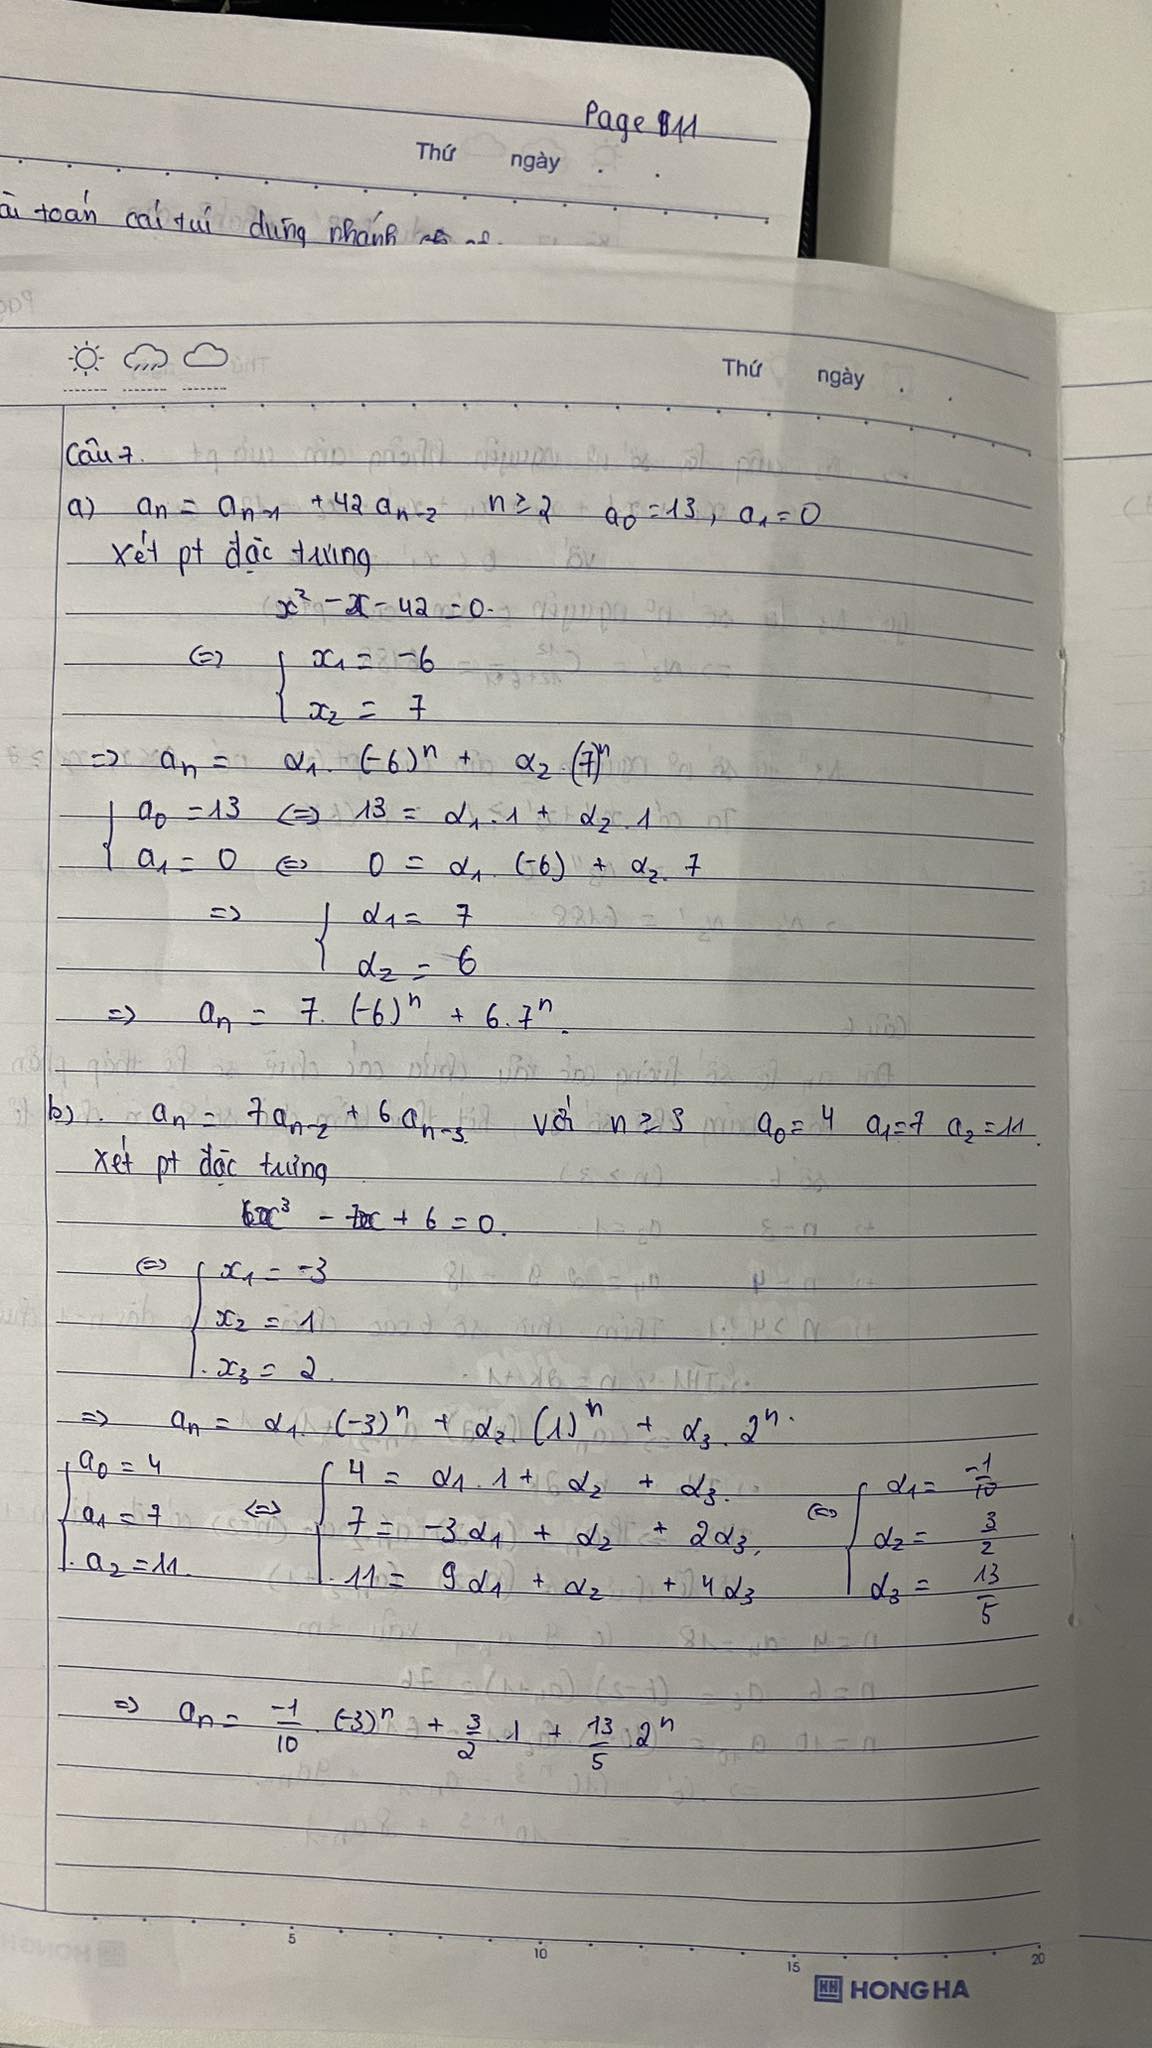 Page 11
Thứ ngày
toán cái túi dùng nhánh
Thứ ngày
Câu 7.
a) aₙ = aₙ₋₁ + 42aₙ₋₂ n ≥ 2 a₀ = 13, a₁ = 0
Xét pt đặc trưng
x² - x - 42 = 0.
⇔ { x₁ = -6
x₂ = 7
⇒ aₙ = α₁. (-6)ⁿ + α₂.(7)ⁿ
{ a₀ = 13 ⇔ 13 = α₁.1 + α₂.1
a₁ = 0 ⇔ 0 = α₁. (-6) + α₂. 7
⇒ { α₁ = 7
α₂ = 6
⇒ aₙ = 7. (-6)ⁿ + 6.7ⁿ.
b). aₙ = 7aₙ₋₂ + 6aₙ₋₃ với n ≥ 3 a₀ = 4 a₁ = 7 a₂ = 11.
Xét pt đặc trưng
x³ - 7x + 6 = 0.
⇔ { x₁ = -3
x₂ = 1
x₃ = 2.
⇒ aₙ = α₁.(-3)ⁿ + α₂.(1)ⁿ + α₃.2ⁿ.
{ a₀ = 4 { 4 = α₁.1 + α₂ + α₃. { α₁ = -1/10
a₁ = 7 ⇔ 7 = -3α₁ + α₂ + 2α₃. ⇔ α₂ = 3/2
a₂ = 11. 11 = 9α₁ + α₂ + 4α₃ α₃ = 13/5
⇒ aₙ = -1/10 .(-3)ⁿ + 3/2 .1 + 13/5 .2ⁿ
5 10 15 20
HH HONG HA